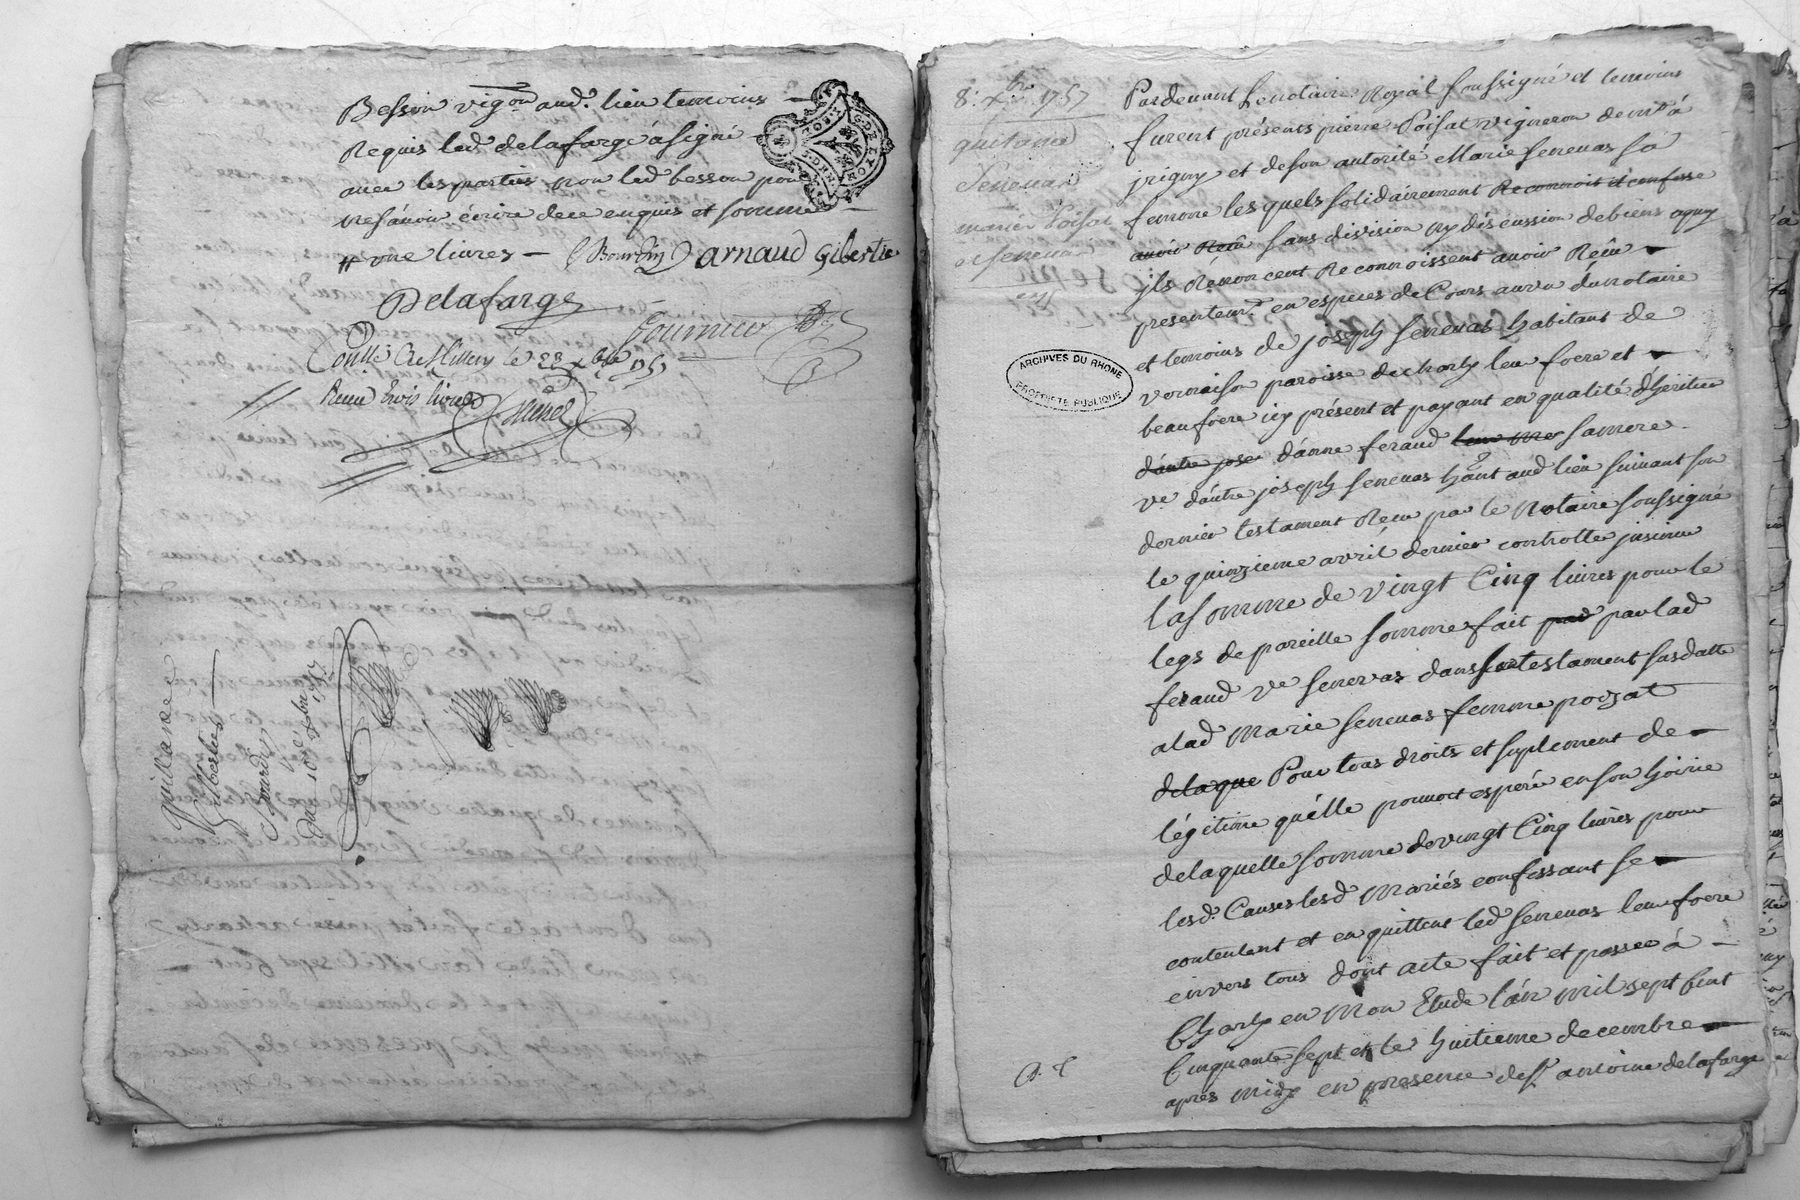 Besson vigon aud. lieu temoins
Requis led delafarge a signé
avec les parties non led besson pour
ne sávoir écrire de ce enquis et sommé
# une livres — Bourdin arnaud Gibertie
Delafarge
fournier
Conllé a Millery le 22 xbre 1757
Reçu trois livres
Michel
Quittance
Gilbertier
Bourdin
du 10e xbre
1757
8e xbre 1757
quitance
Senevas
mariés Poisat
et Senevas
ARCHIVES DU RHONE
PROPRIETE PUBLIQUE
Pardevant Le notaire Royal soussigné et temoins
furent présents pierre Poisat vigneron demt á
jrigny et de son autorité Marie Senevas sa
femme lesquels solidairement Reconnoit et confesse
avoir Reçû sans division ny discussion de biens aquoy
jls Rénoncent Reconnoissent avoir Reçû
presentemt. en especes de Cours au vu du notaire
et temoins de joseph Senevas habitant de
vernaison paroisse de charly leur frere et
beaufrere icy présent et payant en qualité d'heritier
d'autre jose d'anne feraud leur mer sa mere
ve. d'autre joseph senevas hant aud lieu suivant son
dernier testament Reçu par le Notaire soussigné
le quinzieme avril dernier controllé jnsinué
la somme de vingt Cinq livres pour le
legs de pareille somme fait par par lad
feraud ve senevas dans son testament susdatté
a lad Marie senevas femme poizat
de la que Pour tous droits et suplement de
légitime qu'elle pouvoit espéré en son hoirie
de laquelle somme de vingt Cinq livres pour
lesd. Causes lesd Mariés confessant se
contentent et en quittent led senevas leur frere
envers tous dont acte fait et passé á
Charly en Mon Etude l'an mil sept Cent
Cinquante sept et le huitieme decembre
apres midy en presence de sr antoine delafarge